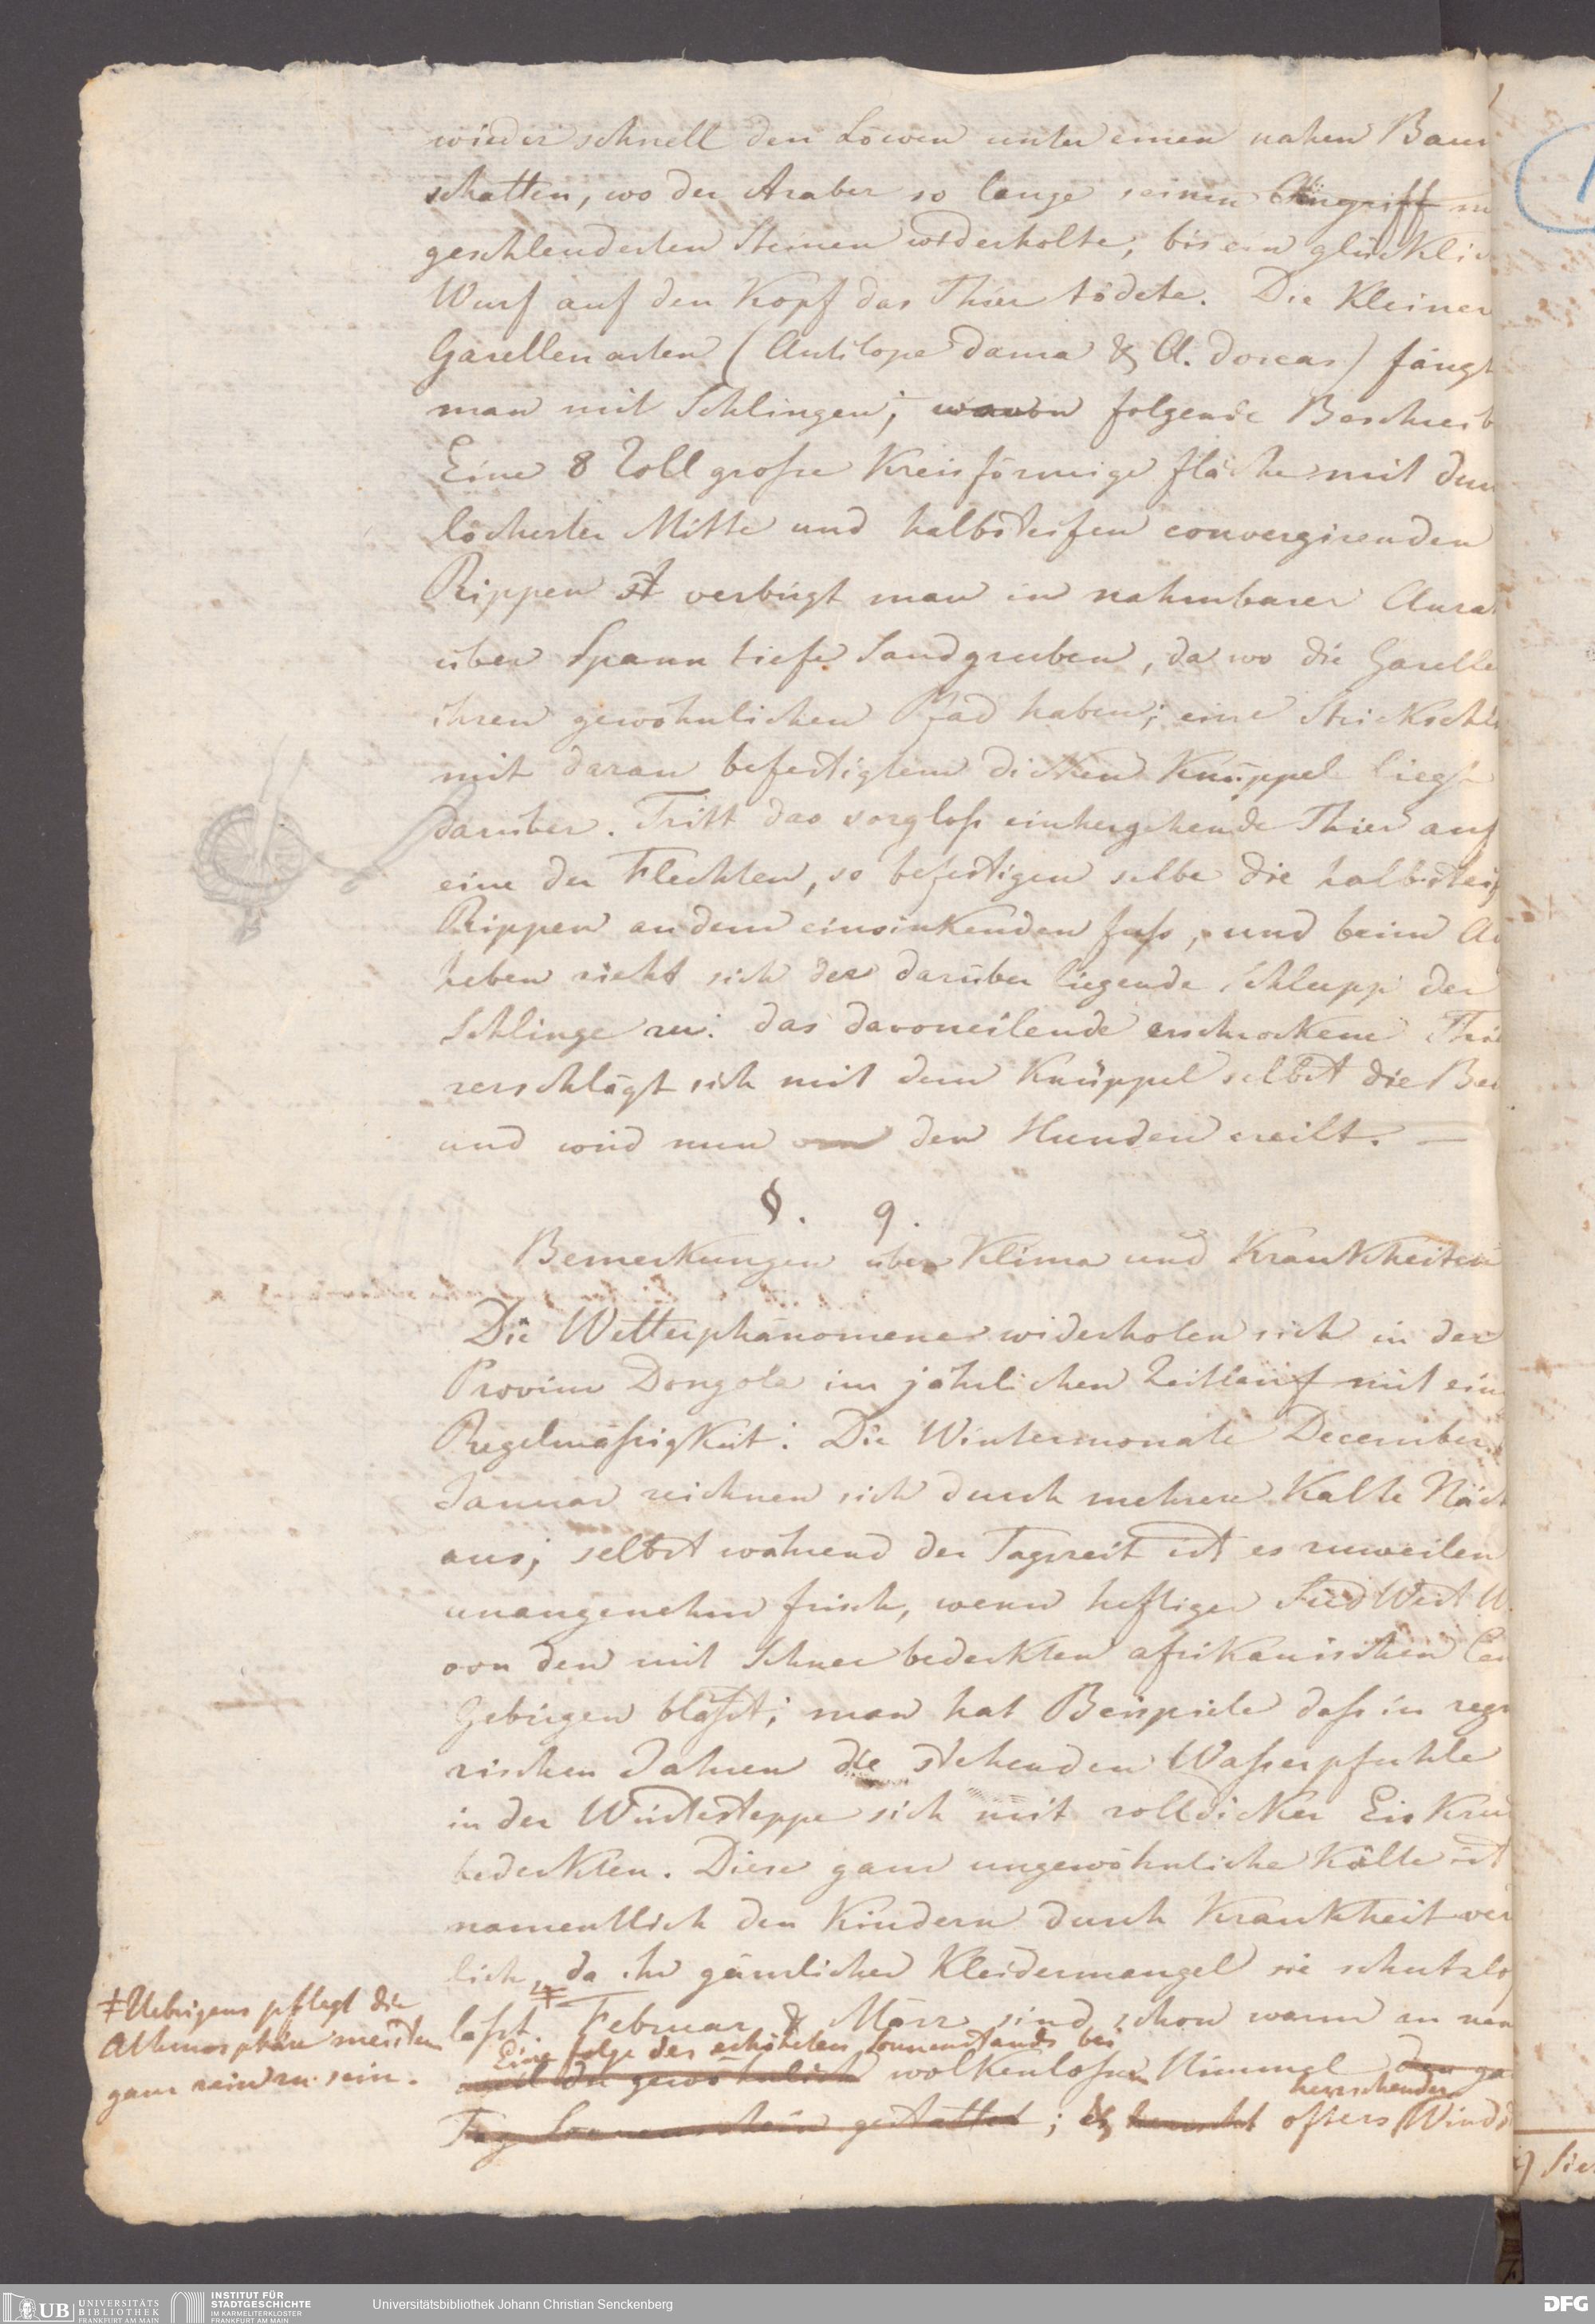 wieder schnell den Löwen unter einen nahen Baum
schatten, wo der Araber so lange seinen Angriff m
geschleuderten Steinen widerholte, bis ein glücklic
Wurf auf den Kopf das Thier tödete. Die Kleiner
Gazellenarten (Antilope Dama & A. Dorcas) fängt
man mit Schlingen; wovon folgende Beschreib
Eine 8 Zoll große Kreisförmige fläche mit dur
löcherter Mitte und halbsteifen convergirenden
Rippen verbirgt man in nahmbarer Anza
über Spann tiefe Sandgruben, da wo die Gazelle
ihren gewöhnlichen Pfad haben; eine Strickschli
mit daran befestigtem dicken Knüppel liegt
darüber. Tritt das sorgloß einhergehende Thier auf
eine der Flechten, so befestigen selbe die halbsteif
Rippen an dem einsinkenden fuß, und beim Au
heben zieht sich der darüber liegende Schlupp der
Schlinge zu: das davoneilende erschrockene Thie
zerschlägt sich mit dem Knüppel selbst die Bei
und wird nun von den Hunden ereilt. —
§. 9.
Bemerkungen über Klima und Krankheiten
Die Wetterphänomene widerholen sich in der
Provinz Dongola im jährlichen Zeitlauf mit ein
Regelmäßigkeit. Die Wintermonate December
Januar zeichnen sich durch mehrere Kalte Näch
aus; selbst während der Tagszeit ist es zuweilen
unangenehm frisch, wenn heftiger Süd West W
von den mit Schnee bedeckten afrikanischen Cen
Gebirgen bläßt; man hat Beispiele daß in reg
rischen Jahren die stehenden Waßerpfuhle
in der Wüstesteppe sich mit zolldicker Eis Kru
bedeckten. Diese ganz ungewöhnliche Kälte ist
namentlich den Kindern durch Krankheit ver
lich, da ihr gänzlicher Kleidermangel sie schutzlo
laßt. ‡ Februar & März sind schon warm zu nen
‡ Uebrigens pflegt die
Athmosphäre meisten
ganz rein zu sein.
Eine folge des erhöhten Sonnenstands bei
weil der gewöhnlich wolkenlosen Himmel den ga
herrschender
Tag Sonnenschein gestattet; & herrscht öfters Wind
) Sie
UB UNIVERSITÄTS BIBLIOTHEK FRANKFURT AM MAIN
INSTITUT FÜR STADTGESCHICHTE IM KARMELITERKLOSTER FRANKFURT AM MAIN
Universitätsbibliothek Johann Christian Senckenberg
DFG